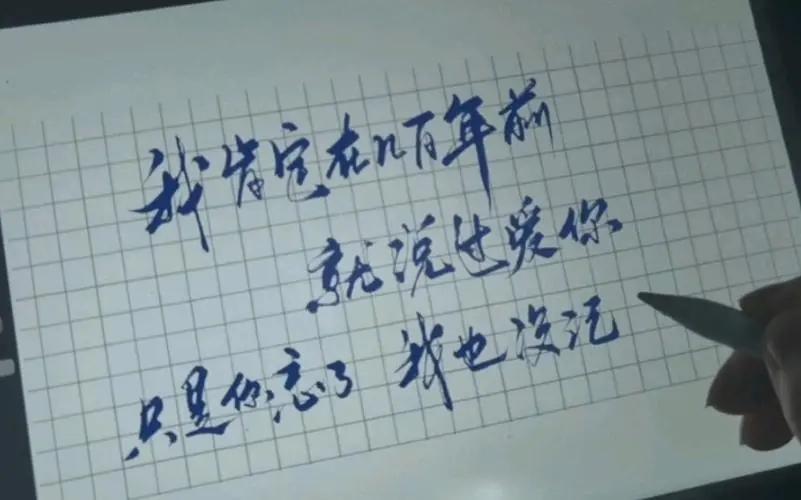 我肯定在几百年前
就说过爱你
只是你忘了 我也没记